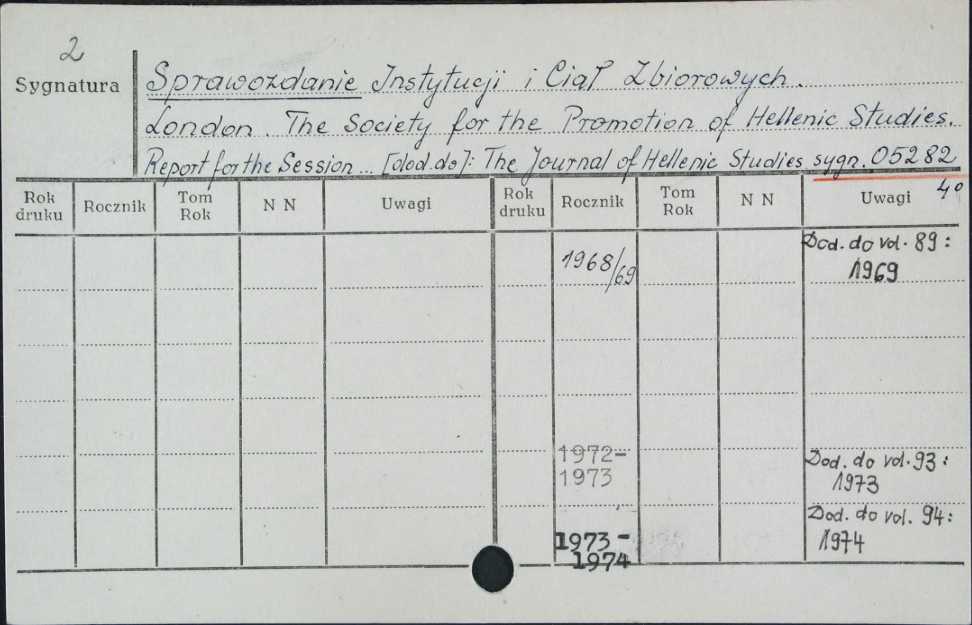 2
Sygnatura
Sprawozdanie Instytucji i Ciał Zbiorowych.
London. The Society for the Promotion of Hellenic Studies.
Report for the Session ... [dod.do]: The Journal of Hellenic Studies sygn. 05282
4°
Rok druku Rocznik Tom Rok N N Uwagi Rok druku Rocznik Tom Rok N N Uwagi
1968/69 Dod. do vol. 89:
1969
1972- Dod. do vol. 93:
1973 1973
Dod. do vol. 94:
1973- 1974
1974